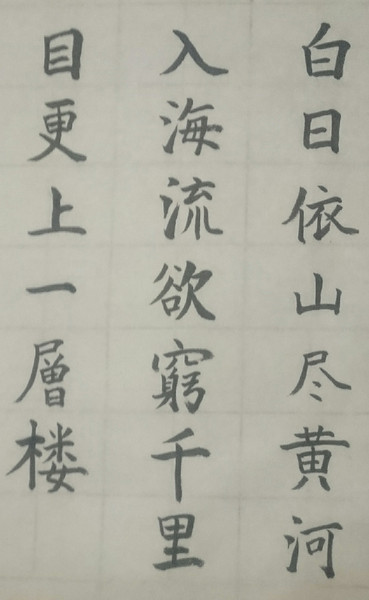 白日依山尽黄河
入海流欲窮千里
目更上一層楼